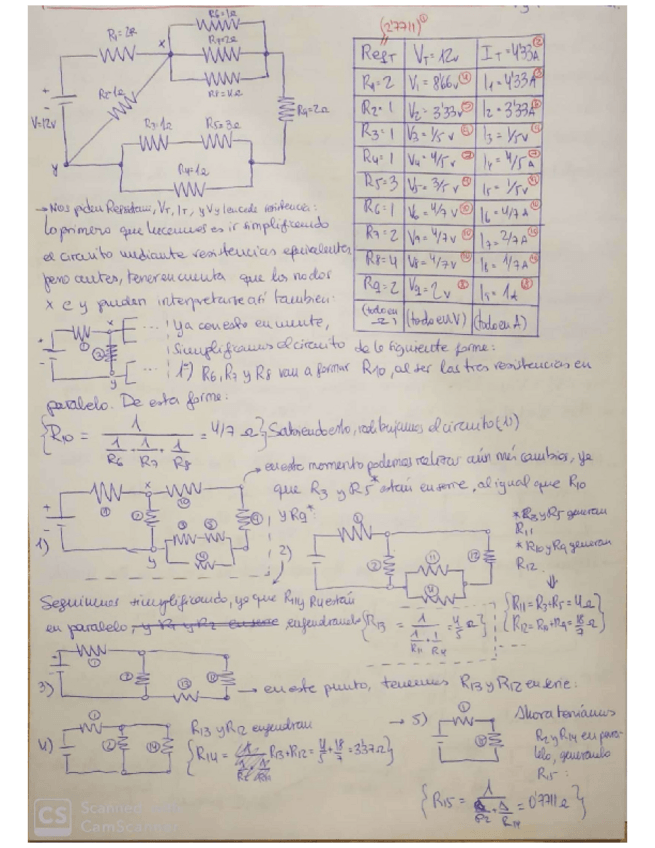 R1=2Ω
R2=1Ω
R3=1Ω
R5=3Ω
R4=1Ω
R6=1Ω
R7=2Ω
R8=4Ω
R9=2Ω
V=12v
x
y
(2'7711)①
ResT | VT=12v | IT=4'33A
R1=2 | V1=8'66v | I1=4'33A
R2=1 | V2=3'33v | I2=3'33A
R3=1 | V3=1/5v | I3=1/5v
R4=1 | V4=4/5v | I4=4/5A
R5=3 | V5=3/5v | I5=1/5v
R6=1 | V6=4/7v | I6=4/7A
R7=2 | V7=4/7v | I7=2/7A
R8=4 | V8=4/7v | I8=1/7A
R9=2 | V9=2v | I9=1A
(todo en Ω) | (todo en V) | (todo en A)
→ Nos piden Restotal, VT, IT, y V y I en cada resistencia:
Lo primero que hacemos es ir simplificando
el circuito mediante resistencias equivalentes
pero antes, tener en cuenta que los nodos
x e y pueden interpretarse así también:
Ya con esto en mente,
simplificamos el circuito de la siguiente forma:
1º) R6, R7 y R8 van a formar R10, al ser las tres resistencias en
paralelo. De esta forma:
{R10 = 1 / (1/R6 + 1/R7 + 1/R8) = 4/7 Ω} Sabiendo esto, redibujamos el circuito (1)
→ en este momento podemos realizar aún más cambios, ya
que R3 y R5* están en serie, al igual que R10
y R9*:
1)
2)
* R3 y R5 generan
R11
* R10 y R9 generan
R12
{R11=R3+R5=4Ω
R12=R10+R9=18/7Ω}
Seguimos simplificando, ya que R11 y R4 están
en paralelo, y R1 y R2 en serie, engendrando {R13 = 1 / (1/R11 + 1/R4) = 4/5 Ω}
3)
→ en este punto, tenemos R13 y R12 en serie:
4)
R13 y R12 engendran
{R14 = R13+R12 = 4/5 + 18/7 = 3'37Ω}
→ 5)
Ahora teníamos
R2 y R14 en para-
lelo, generando
R15:
{R15 = 1 / (1/R2 + 1/R14) = 0'7711Ω}
CS
Scanned with
CamScanner